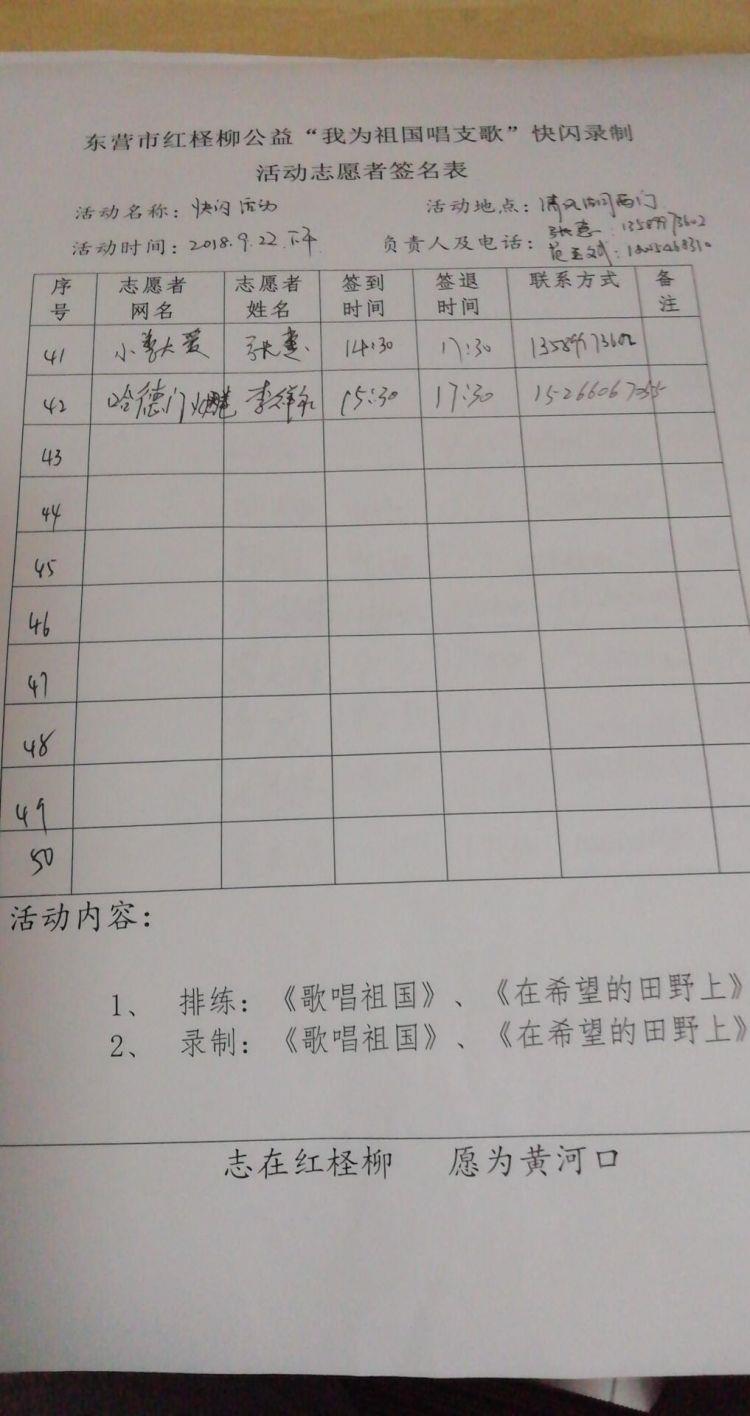 东营市红柽柳公益“我为祖国唱支歌”快闪录制
活动志愿者签名表
活动名称：快闪活动 活动地点：清风湖西门
活动时间：2018.9.22.下午 负责人及电话：张惠：13589973602
范玉斌：
序号 志愿者网名 志愿者姓名 签到时间 签退时间 联系方式 备注
41 小李大爱 张惠 14:30 17:30 13589973602
42 哈德门 15:30 17:30
43
44
45
46
47
48
49
50
活动内容：
1、 排练：《歌唱祖国》、《在希望的田野上》
2、 录制：《歌唱祖国》、《在希望的田野上》
志在红柽柳 愿为黄河口